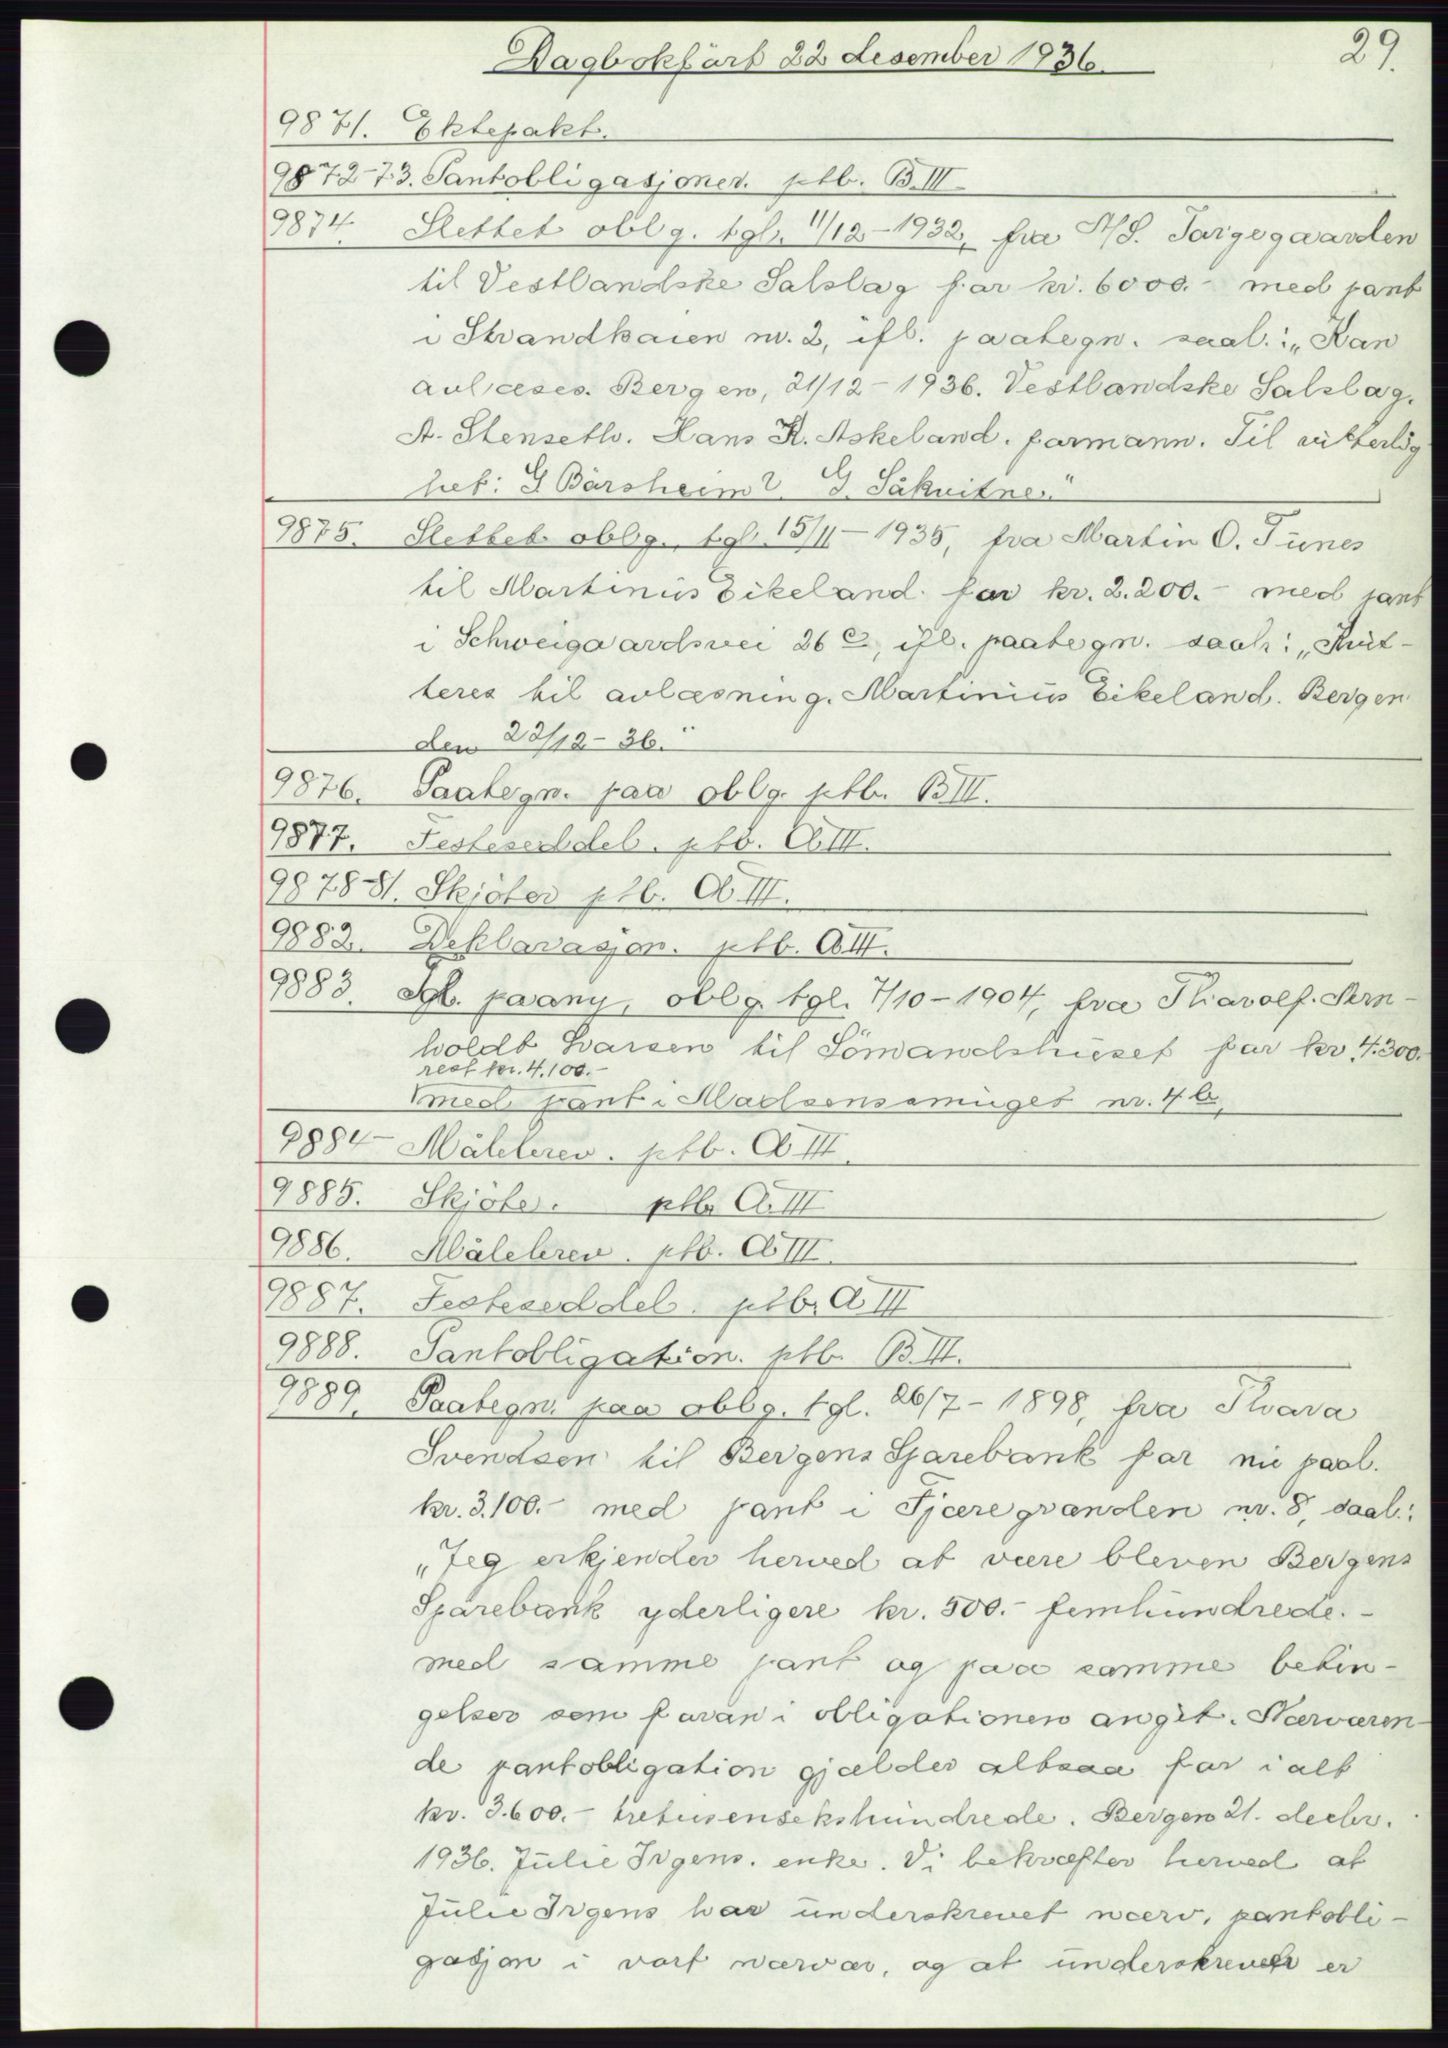 29.
Dagbokført 22 desember 1936.
9871. Ektepakt.
9872-73. Pantobligasjoner. ptb. B.III
9874. Slettet oblg. tgl. 11/12-1932, fra A/S. Torgegaarden
til Vestlandske Salslag for kr. 6000.- med pant
i Strandkaien nr. 2, ifl. paategn. saal.: „Kan
avlæses. Bergen, 21/12-1936. Vestlandske Salslag.
A. Stenseth. Hans K. Askeland. formann. Til vitterlig
het: G Børsheim G. Såkvitne."
9875. Slettet oblg. tgl. 15/11-1935, fra Martin O. Tunes
til Martinius Eikeland for kr. 2.200.- med pant
i Schweigaardsvei 26 c, ifl. paategn. saal.: „Kvit-
teres til avlæsning. Martinius Eikeland. Bergen
den 22/12-36."
9876. Paategn. paa oblg. ptb. B III.
9877. Festeseddel. ptb. A III.
9878-81. Skjøter ptb. A III.
9882. Deklarasjon. ptb. A III.
9883. Tgl. paany, oblg. tgl. 7/10-1904, fra Thorolf Arn-
holdt Larsen til Sömandshuset for kr. 4.300.
rest kr. 4.100.-
med pant i Madsensmuget nr. 4 b,
9884- Målebrev. ptb. A III.
9885. Skjøte. ptb. A. III
9886. Målebrev. ptb. A III.
9887. Festeseddel. ptb. A III
9888. Pantobligation. ptb. B. III.
9889. Paategn. paa oblg. tgl. 26/7-1898, fra Thora
Svendsen til Bergens Sparebank for nu paal.
kr. 3.100.- med pant i Fjæregranden nr. 8, saal.:
„Jeg erkjender herved at være bleven Bergens
Sparebank yderligere kr. 500.- femhundrede.-
med samme pant og paa samme betin-
gelser som foran i obligationen angit. Nærværen-
de pantobligation gjælder altsaa for i alt
kr. 3.600.- tretusensekshundrede. Bergen 21. decbr.
1936. Julie Irgens. enke. Vi bekræfter herved at
Julie Irgens har underskrevet nærv. pantobli-
gasjon i vort nærvær, og at underskrever er